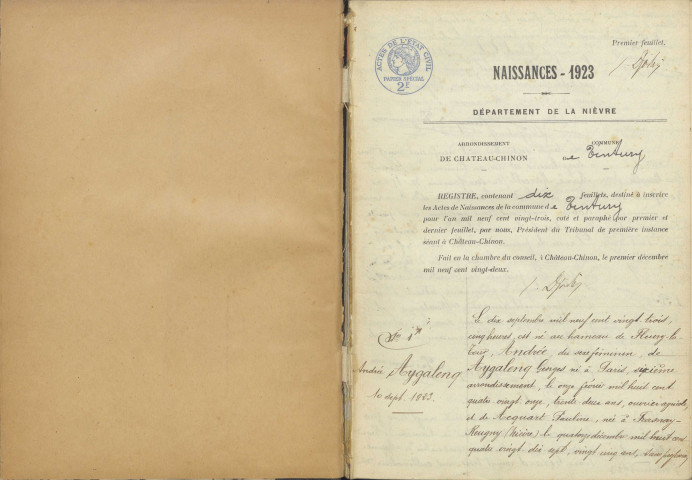 Premier feuillet.
ACTES DE L'ETAT CIVIL
PAPIER SPECIAL
2F
NAISSANCES - 1923
DÉPARTEMENT DE LA NIÈVRE
ARRONDISSEMENT
DE CHATEAU-CHINON
COMMUNE
de Tintury
REGISTRE, contenant dix feuillets, destiné à inscrire
les Actes de Naissances de la commune de Tintury
pour l'an mil neuf cent vingt-trois, coté et paraphé par premier et
dernier feuillet, par nous, Président du Tribunal de première instance
séant à Château-Chinon.
Fait en la chambre du conseil, à Château-Chinon, le premier décembre
mil neuf cent vingt-deux.
André Aygalenq
10 sept. 1923.
Le dix septembre mil neuf cent vingt trois,
cinq heures, est né au hameau de Fleury la
Tour, Andrée, du sexe féminin, de
Aygalenq Georges né à Paris, sixième
arrondissement, le onze février mil huit cent
quatre vingt onze, trente deux ans, ouvrier agricole,
et de Acquart Pauline, née à Frasnay-
Reugny (Nièvre) le quatorze décembre mil huit cent
quatre vingt dix sept, vingt cinq ans,